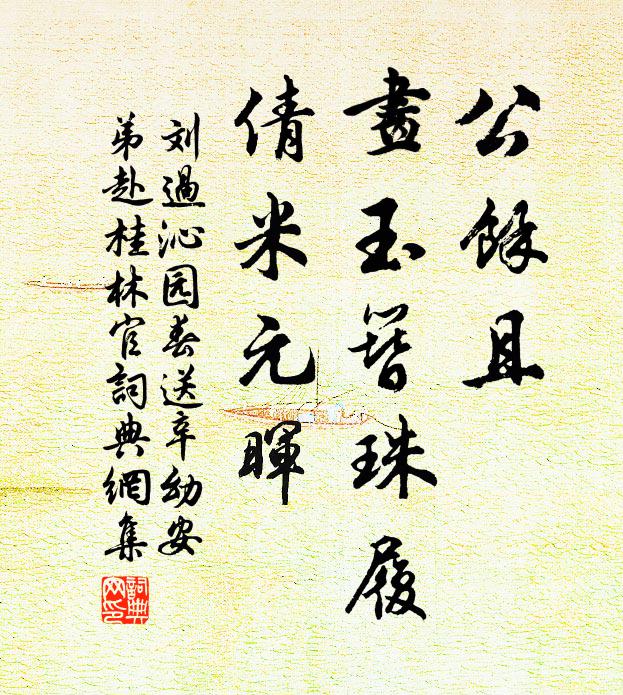 公餘且
畫玉簪珠履
倩米元暉
刘過沁园春送辛幼安
弟赴桂林官詞典網集
詞典
网印